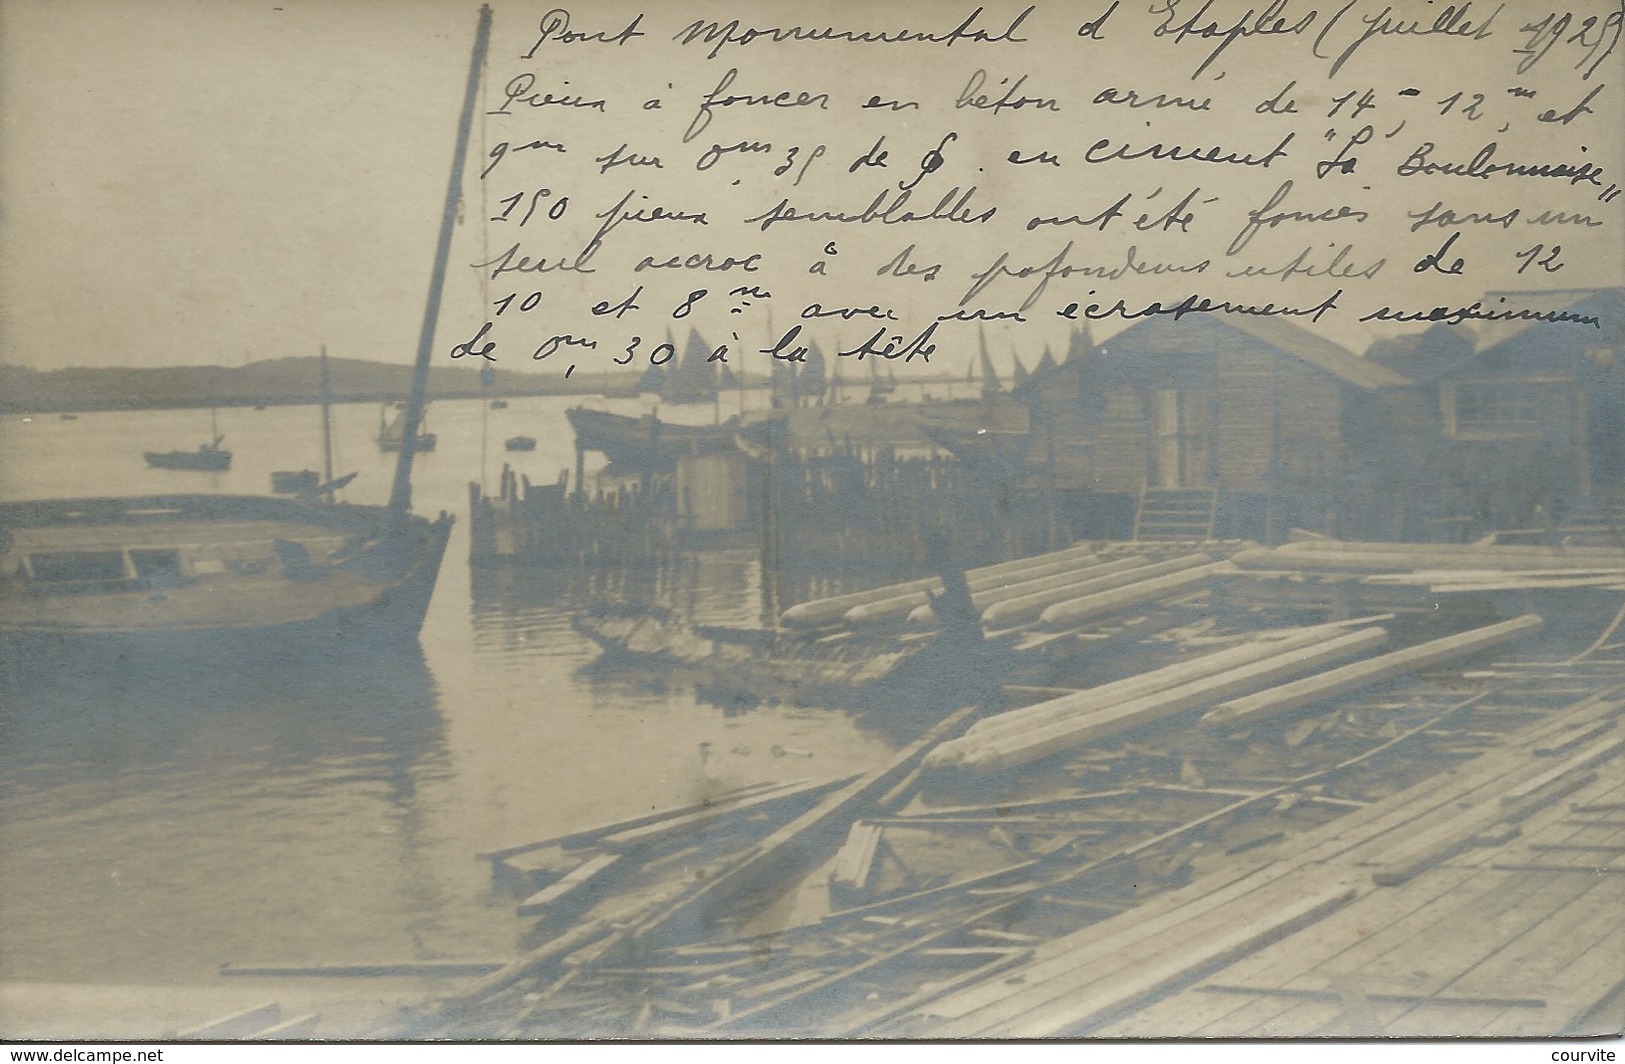 Pont Monumental d'Etaples (Juillet 1925)
Pieux à foncer en béton armé de 14m, 12m, et
9m sur 0m,35 de ϕ. en ciment "La Boulonnaise"
150 pieux semblables ont été foncés sans un
seul accroc à des pofondeurs utiles de 12
10 et 8m avec un écrasement maximum
de 0m,30 à la tête
www.delcampe.net
courvite